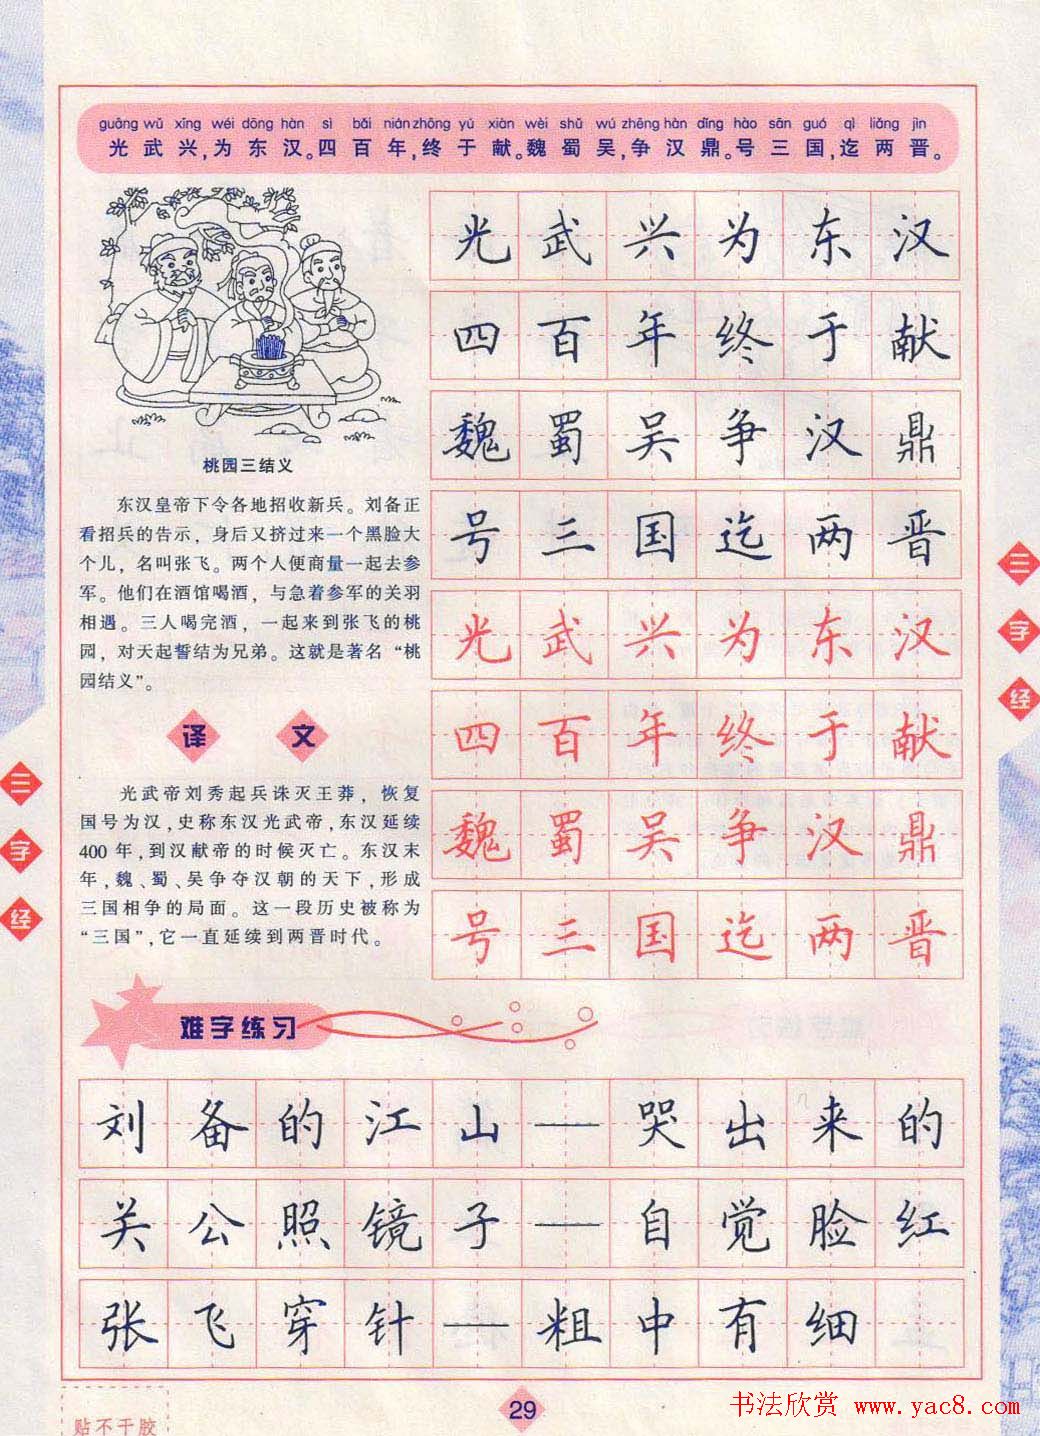 guāng wǔ xīng wéi dōng hàn sì bǎi nián zhōng yú xiàn wèi shǔ wú zhēng hàn dǐng hào sān guó qì liǎng jìn
光武兴,为东汉。四百年,终于献。魏蜀吴,争汉鼎。号三国,迄两晋。
光武兴为东汉
四百年终于献
魏蜀吴争汉鼎
号三国迄两晋
光武兴为东汉
四百年终于献
魏蜀吴争汉鼎
号三国迄两晋
桃园三结义
东汉皇帝下令各地招收新兵。刘备正
看招兵的告示，身后又挤过来一个黑脸大
个儿，名叫张飞。两个人便商量一起去参
军。他们在酒馆喝酒，与急着参军的关羽
相遇。三人喝完酒，一起来到张飞的桃
园，对天起誓结为兄弟。这就是著名“桃
园结义”。
译文
光武帝刘秀起兵诛灭王莽，恢复
国号为汉,史称东汉光武帝,东汉延续
400年,到汉献帝的时候灭亡。东汉末
年,魏、蜀、吴争夺汉朝的天下,形成
三国相争的局面。这一段历史被称为
“三国”,它一直延续到两晋时代。
难字练习
刘备的江山—哭出来的
关公照镜子—自觉脸红
张飞穿针—粗中有细
三字经
三字经
贴不干胶
29
书法欣赏 www.yac8.com